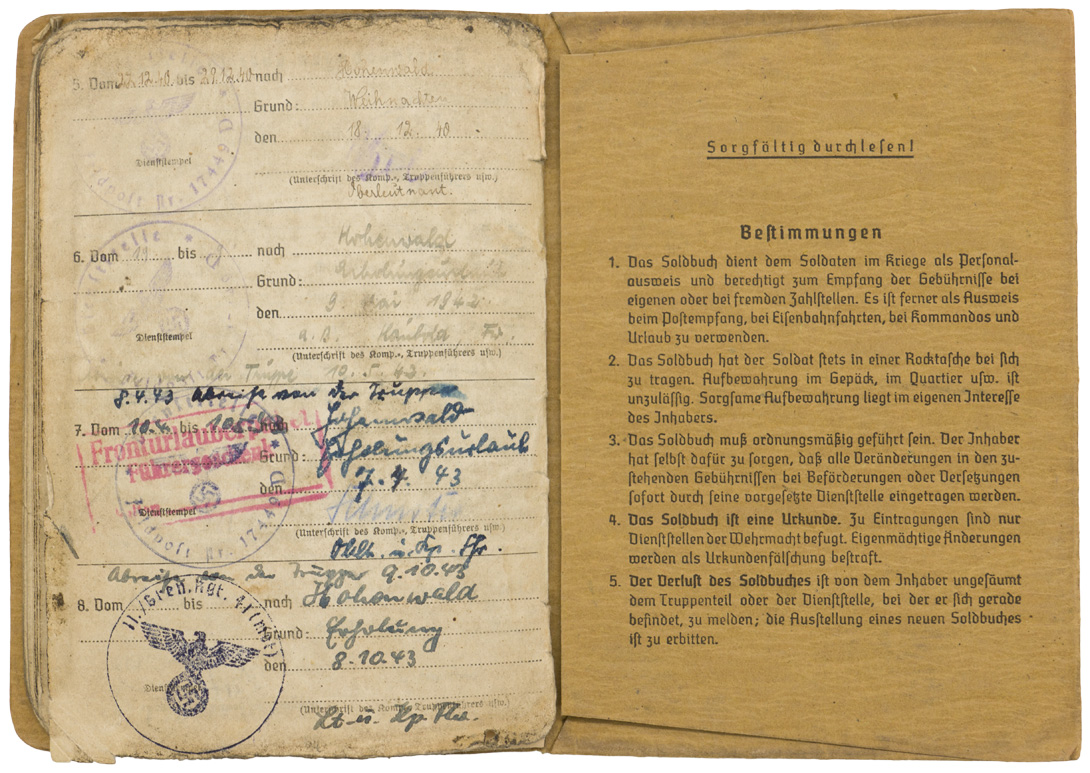 5. Vom 22.12.40 bis 29.12.40 nach Hohenwald
Grund: Weihnachten
den 18. 12. 40.
Dienststempel
(Unterschrift des Komp.-, Truppenführers usw.)
Oberleutnant.
Feldpost Nr. 17449 D
6. Vom 19 bis nach Hohenwald
Grund: Erholungsurlaub
den 9. Mai 1942
Dienststempel
(Unterschrift des Komp.-, Truppenführers usw.)
der Truppe 10.5.42.
8.4.43 Abreise von der Truppe
7. Vom 10.4. bis nach Hohenwald
Fronturlauber
Führergeschenk
Grund: Erholungsurlaub
den 7. 4. 43
Dienststempel
Feldpost Nr. 17449 D
(Unterschrift des Komp.-, Truppenführers usw.)
Oblt. u. Kp. Fhr.
Abreise von der Truppe 9.10.43
8. Vom bis nach Hohenwald
II./Gren. Rgt. 41 (mot)
Grund: Erholung
den 8.10.43
(Unterschrift des Komp.-, Truppenführers usw.)
Lt. u. Kp.
Sorgfältig durchlesen!
Bestimmungen
1. Das Soldbuch dient dem Soldaten im Kriege als Personal-
ausweis und berechtigt zum Empfang der Gebührnisse bei
eigenen oder bei fremden Zahlstellen. Es ist ferner als Ausweis
beim Postempfang, bei Eisenbahnfahrten, bei Kommandos und
Urlaub zu verwenden.
2. Das Soldbuch hat der Soldat stets in einer Rocktasche bei sich
zu tragen. Aufbewahrung im Gepäck, im Quartier usw. ist
unzulässig. Sorgsame Aufbewahrung liegt im eigenen Interesse
des Inhabers.
3. Das Soldbuch muß ordnungsmäßig geführt sein. Der Inhaber
hat selbst dafür zu sorgen, daß alle Veränderungen in den zu-
stehenden Gebührnissen bei Beförderungen oder Versetzungen
sofort durch seine vorgesetzte Dienststelle eingetragen werden.
4. Das Soldbuch ist eine Urkunde. Zu Eintragungen sind nur
Dienststellen der Wehrmacht befugt. Eigenmächtige Änderungen
werden als Urkundenfälschung bestraft.
5. Der Verlust des Soldbuches ist von dem Inhaber ungesäumt
dem Truppenteil oder der Dienststelle, bei der er sich gerade
befindet, zu melden; die Ausstellung eines neuen Soldbuches
ist zu erbitten.